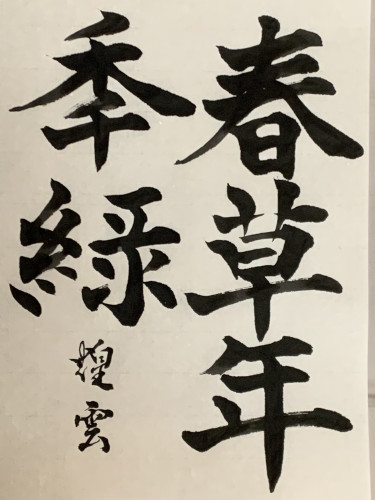 春草年
季緑
煌雲